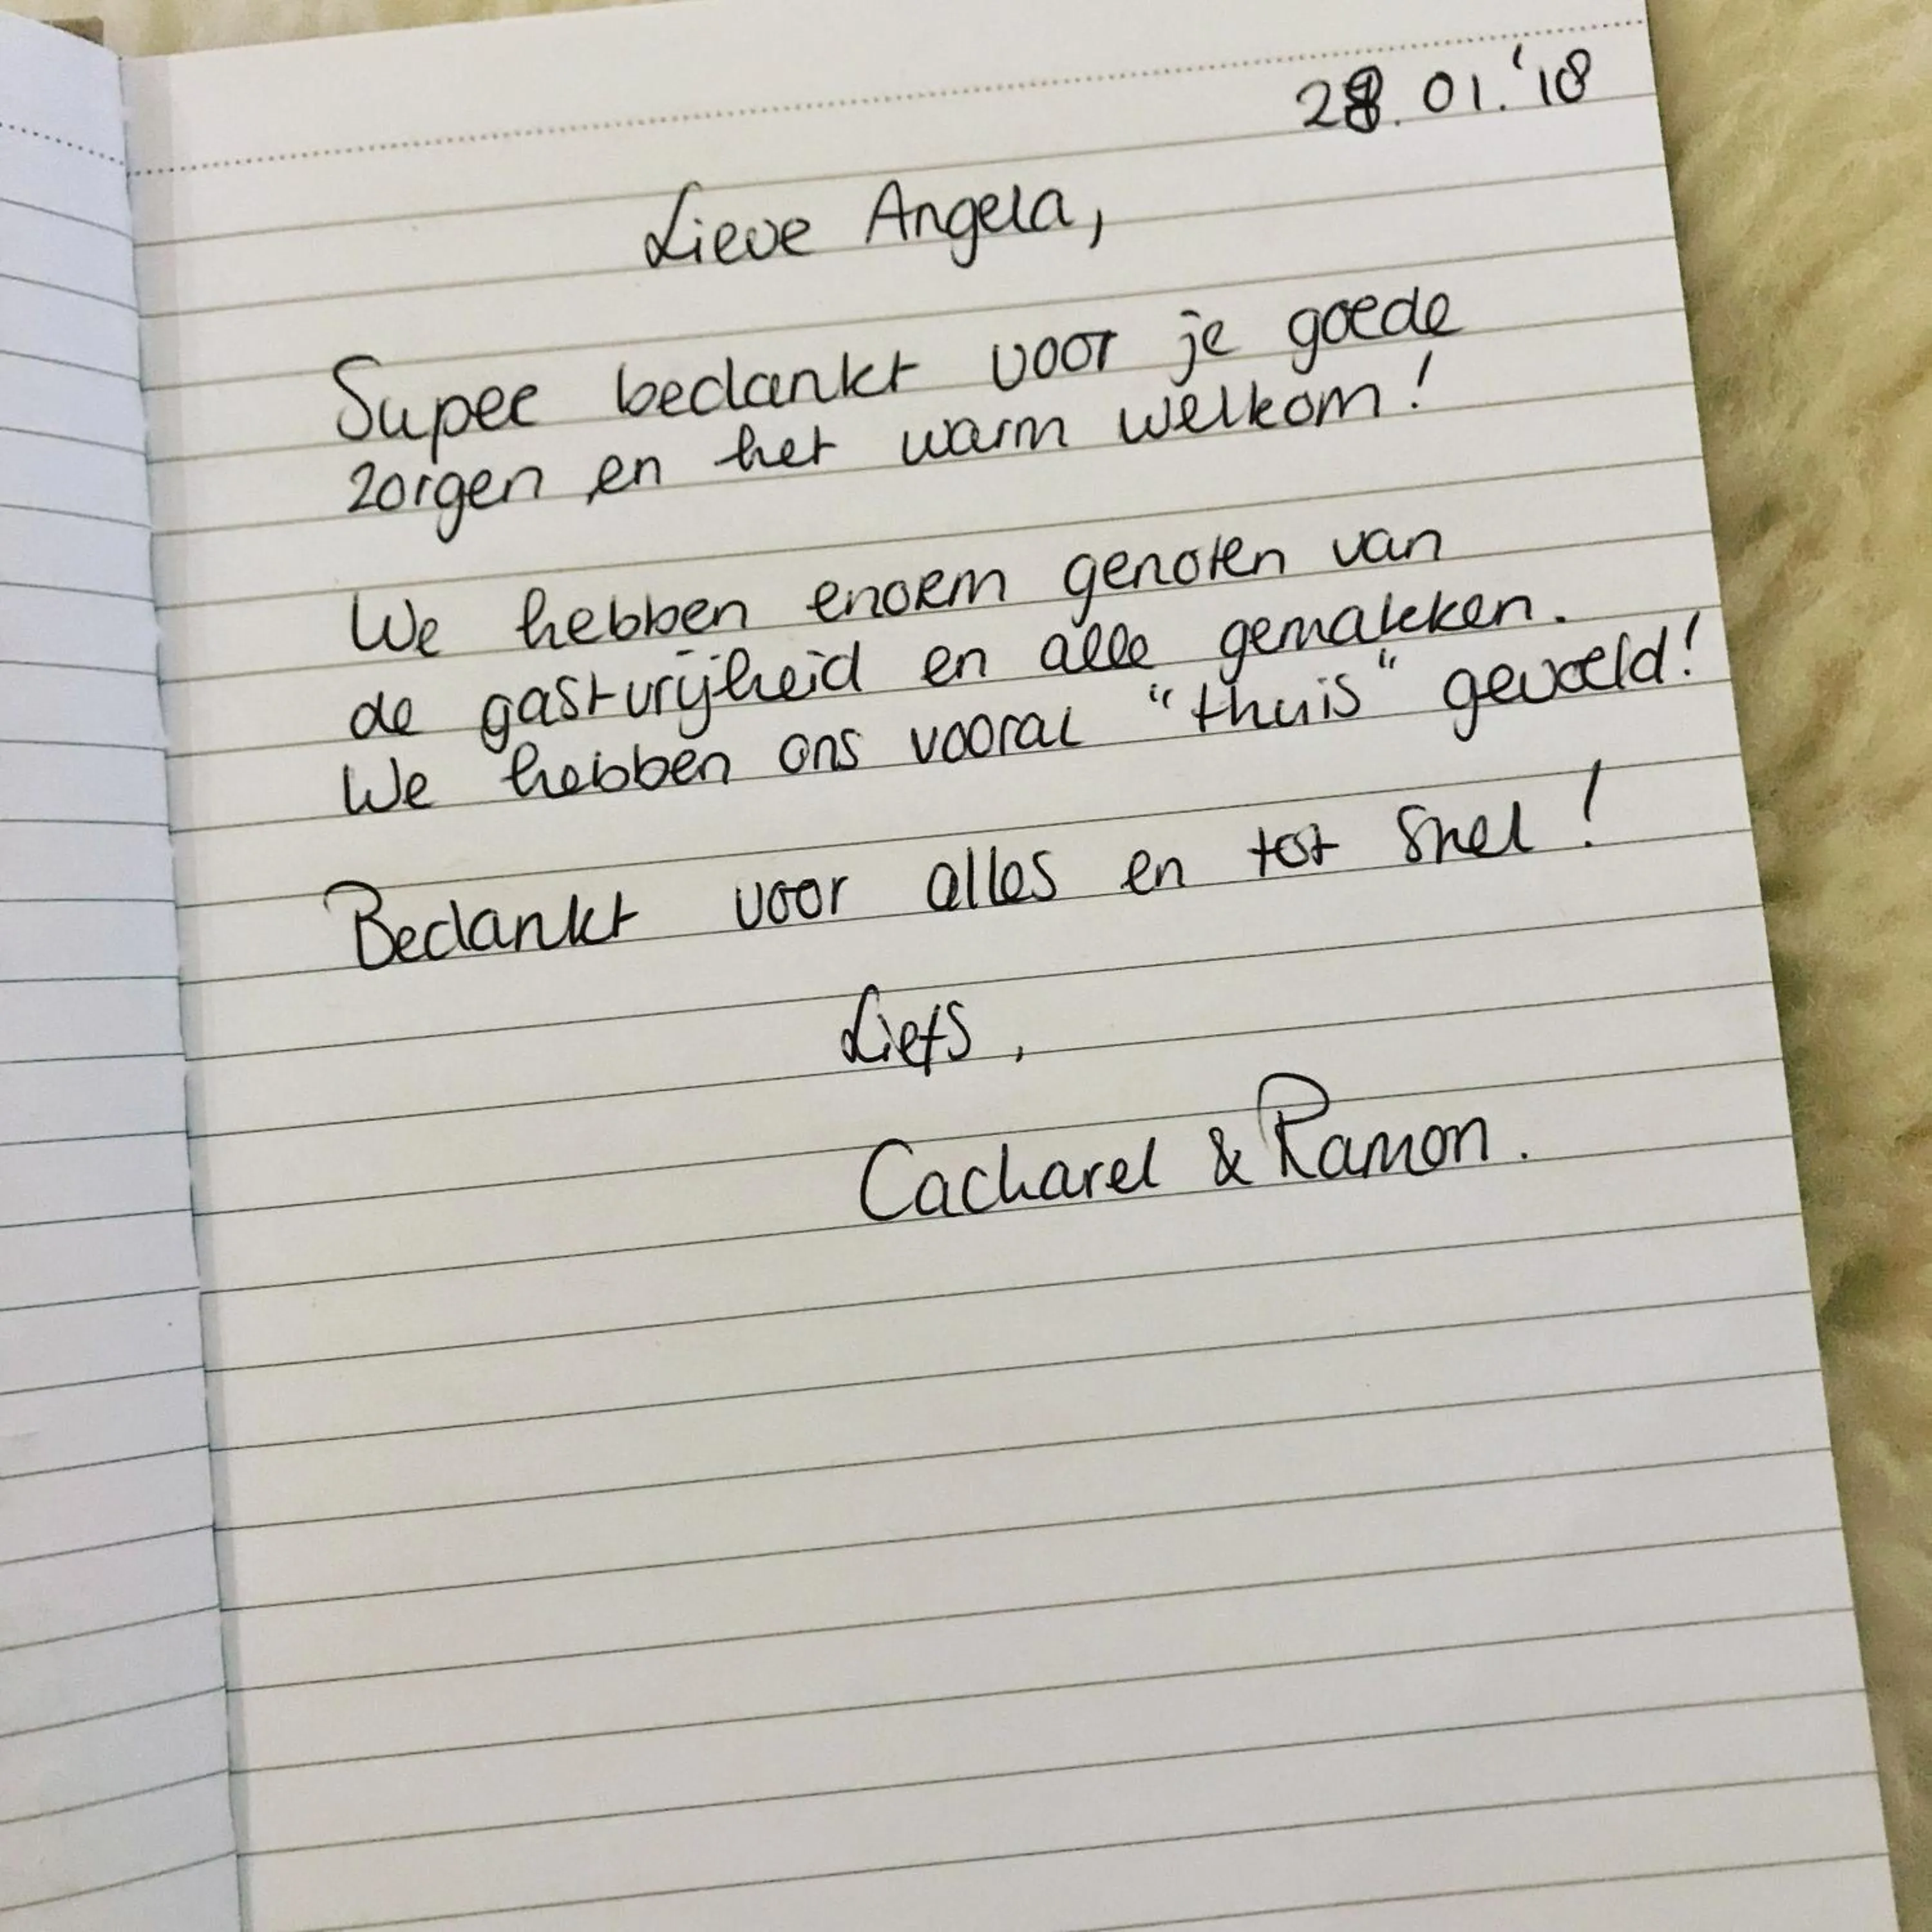 28.01.'18
Lieve Angela,
Super bedankt voor je goede
zorgen en het warm welkom!
We hebben enorm genoten van
de gastvrijheid en alle gemakken.
We hebben ons vooral "thuis" gevoeld!
Bedankt voor alles en tot snel!
Liefs,
Cacharel & Ramon.